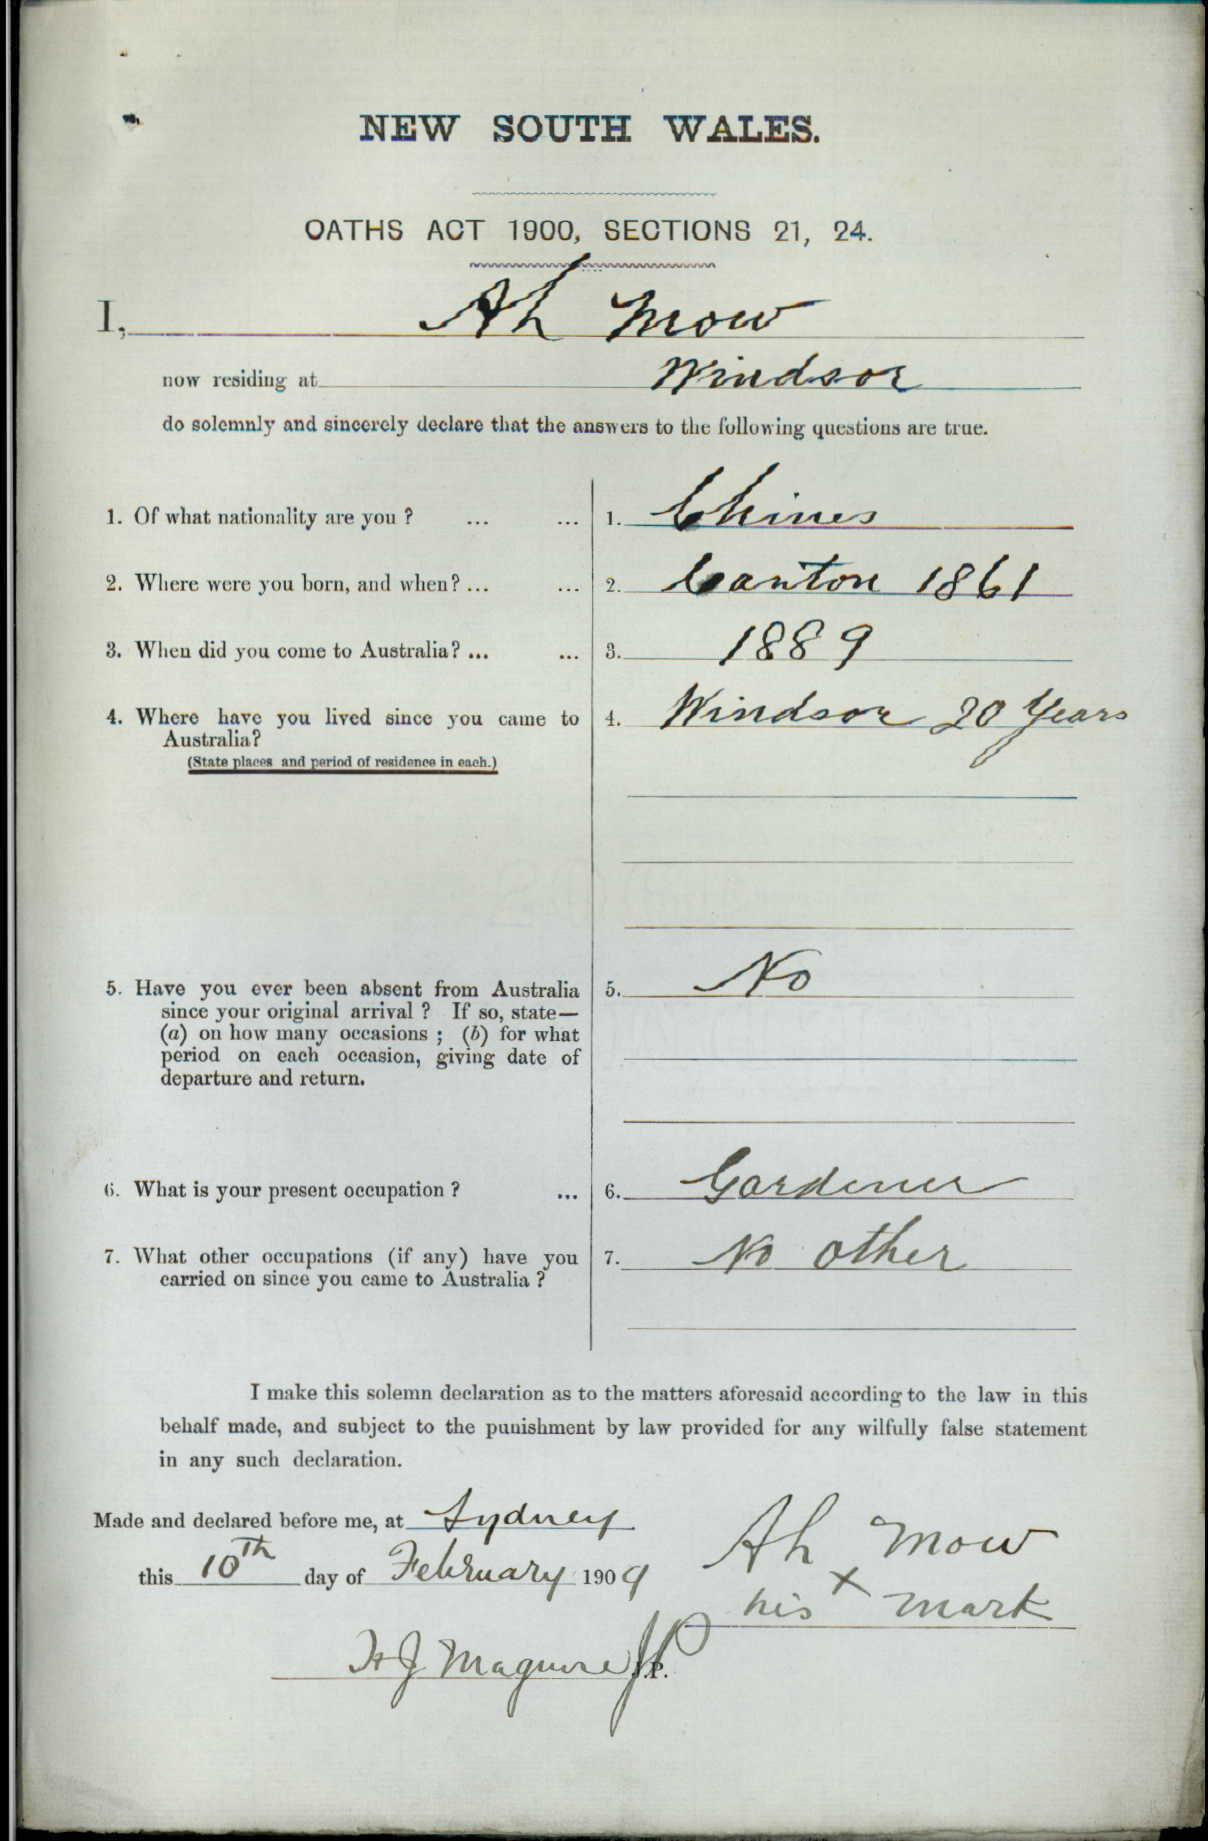 NEW SOUTH WALES.
OATHS ACT 1900, SECTIONS 21, 24.
I, Ah Mow
now residing at Windsor
do solemnly and sincerely declare that the answers to the following questions are true.
1. Of what nationality are you ? ... ... 1. Chines
2. Where were you born, and when? ... ... 2. Canton 1861
3. When did you come to Australia? ... ... 3. 1889
4. Where have you lived since you came to 4. Windsor 20 Years
Australia?
(State places and period of residence in each.)
5. Have you ever been absent from Australia 5. No
since your original arrival ? If so, state—
(a) on how many occasions ; (b) for what
period on each occasion, giving date of
departure and return.
6. What is your present occupation ? ... 6. Gardener
7. What other occupations (if any) have you 7. No other
carried on since you came to Australia ?
I make this solemn declaration as to the matters aforesaid according to the law in this
behalf made, and subject to the punishment by law provided for any wilfully false statement
in any such declaration.
Made and declared before me, at Sydney
this 10th day of February 1909
Ah Mow
his x mark
H J Maguire JP J.P.